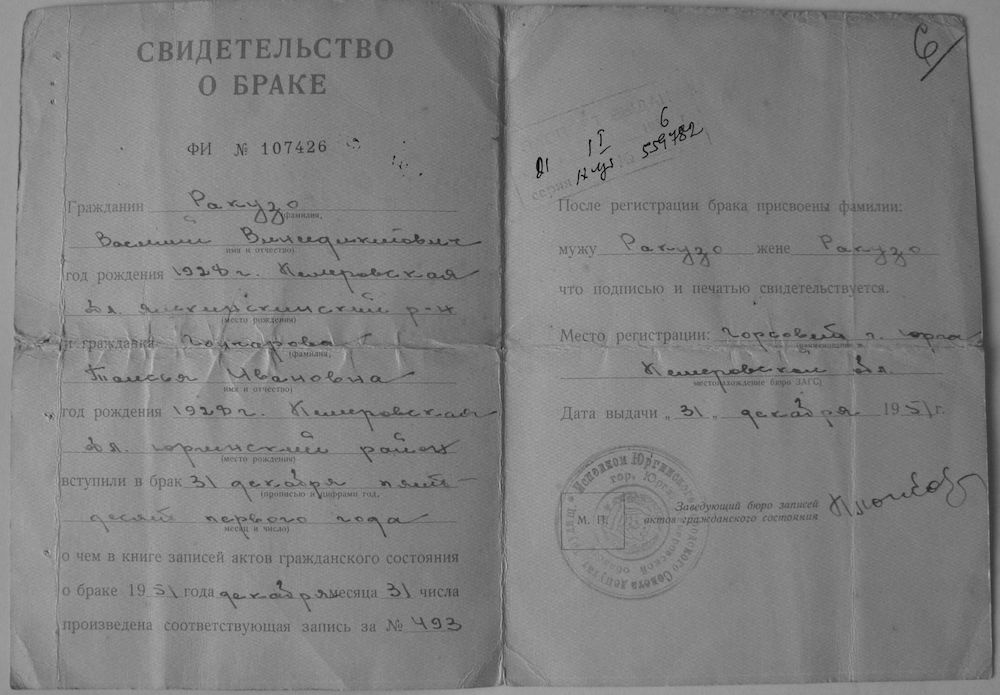 СВИДЕТЕЛЬСТВО
О БРАКЕ
ФИ № 107426
Гражданин Ракузо
(фамилия,
Василий Винедиктович
имя и отчество)
год рождения 1928 г. Кемеровская
обл. р-н
(место рождения)
и гражданка Гончарова
(фамилия,
Таисья Ивановна
имя и отчество)
год рождения 1928 г. Кемеровская
обл. Юргинский район
(место рождения)
вступили в брак 31 декабря пять-
(прописью и цифрами год,
десят первого года
месяц и число)
о чем в книге записей актов гражданского состояния
о браке 1951 года декабря месяца 31 числа
произведена соответствующая запись за № 493
6
6
559782
После регистрации брака присвоены фамилии:
мужу Ракузо жене Ракузо
что подписью и печатью свидетельствуется.
Место регистрации: Горсовет г. Юрга
(наименование и
Кемеровской обл.
местонахождение бюро ЗАГС)
Дата выдачи „31„ декабря 1951 г.
Исполком Юргинского
гор. Юрга
М. П.
Заведующий бюро записей
актов гражданского состояния